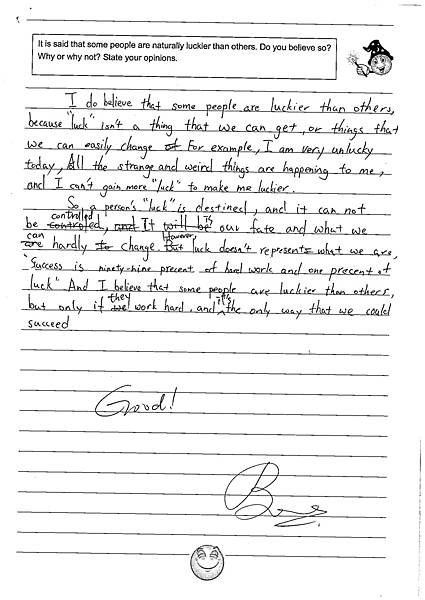 It is said that some people are naturally luckier than others. Do you believe so?
Why or why not? State your opinions.
I do believe that some people are luckier than others,
because "luck" isn't a thing that we can get, or things that
we can easily change of For example, I am very unlucky
today, All the strange and weird things are happening to me,
and I can't gain more "luck" to make me luckier.
So, a person's "luck" is destined, and it can not
be controlled, and It is our fate and what we
can hardly to change. However, luck doesn't represent what we are,
"Success is ninety-nine precent of hard work and one precent of
luck" And I believe that some people are luckier than others,
but only if they work hard, and it's the only way that we could
succeed
Good!